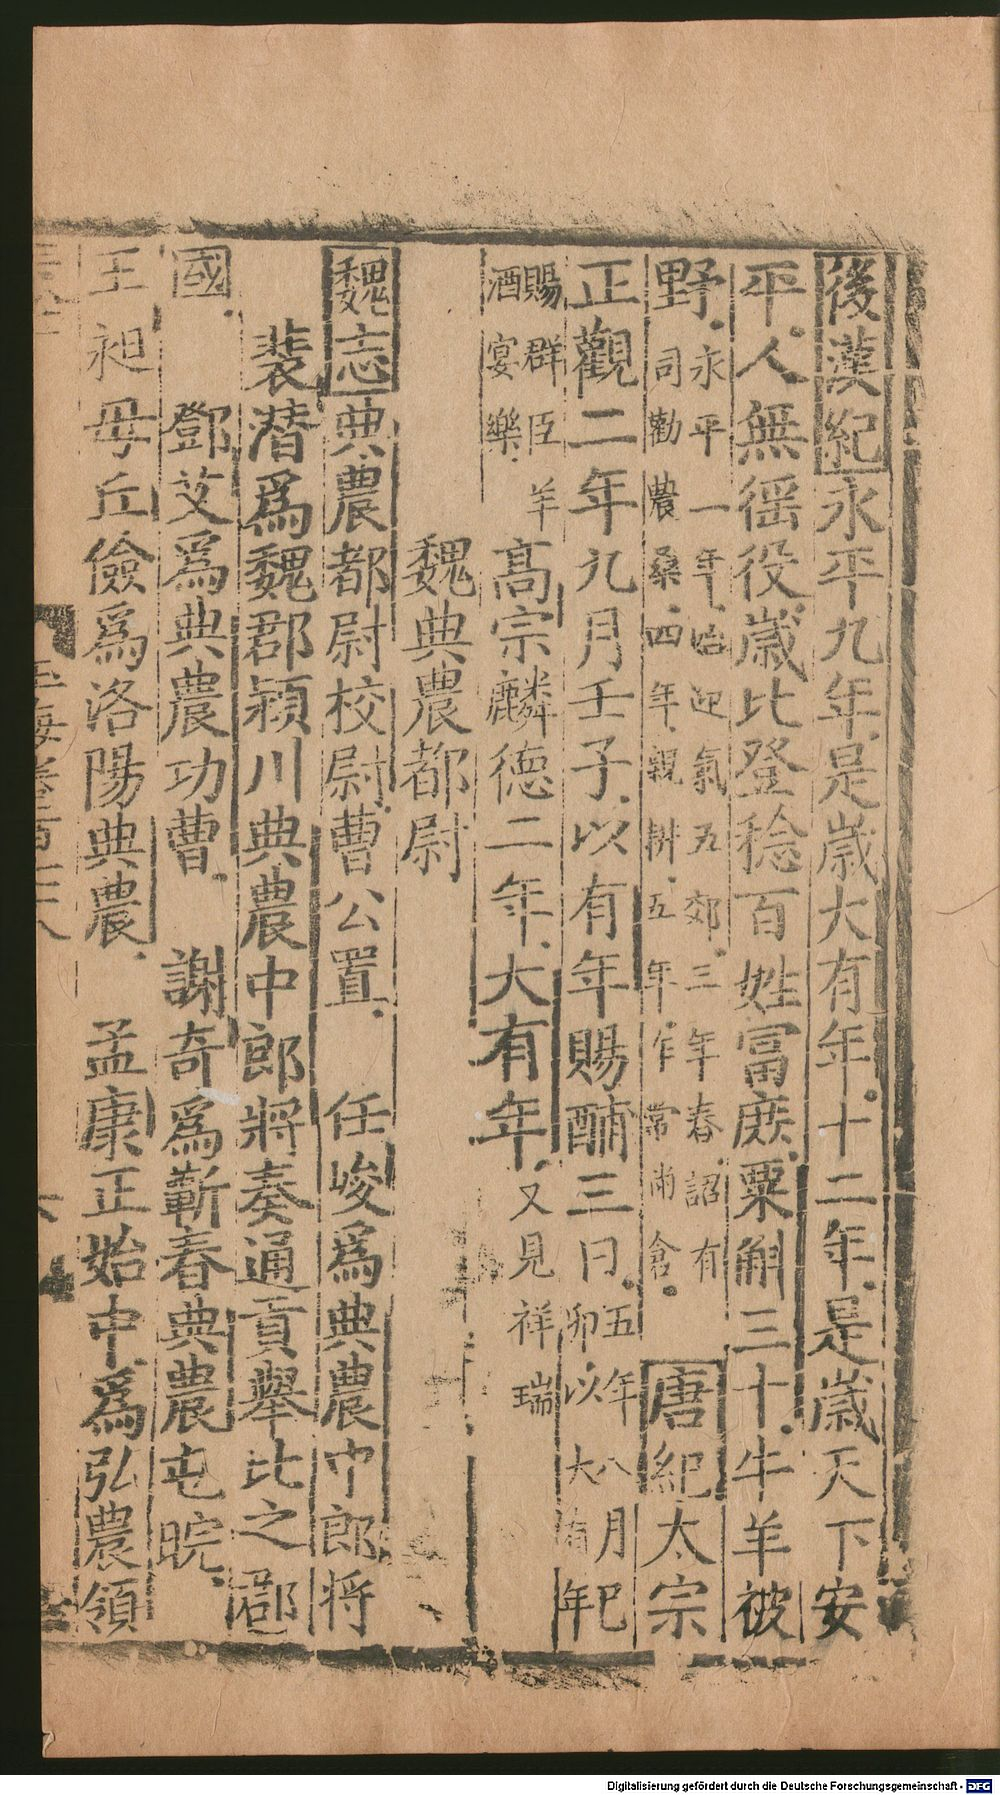 後漢紀永平九年是歲大有年十二年是歲天下安
平人無徭役歲比登稔百姓富庶粟斛三十牛羊被
野永平二年始迎氣五郊三年春詔有
司勸農桑四年親耕五年作常滿倉
唐紀太宗
正觀二年九月壬子以有年賜酺三日
五年八月巳
卯以大有年
賜群臣羊
酒宴樂
高宗麟德二年大有年又見祥瑞
魏典農都尉
魏志典農都尉校尉曹公置 任峻爲典農中郎將
裴潛爲魏郡潁川典農中郎將奏通貢舉比之郡
國 鄧艾爲典農功曹 謝奇爲蘄春典農屯皖
王昶毋丘儉爲洛陽典農 孟康正始中爲弘農領
玉海卷百七十八
Digitalisierung gefördert durch die Deutsche Forschungsgemeinschaft - DFG